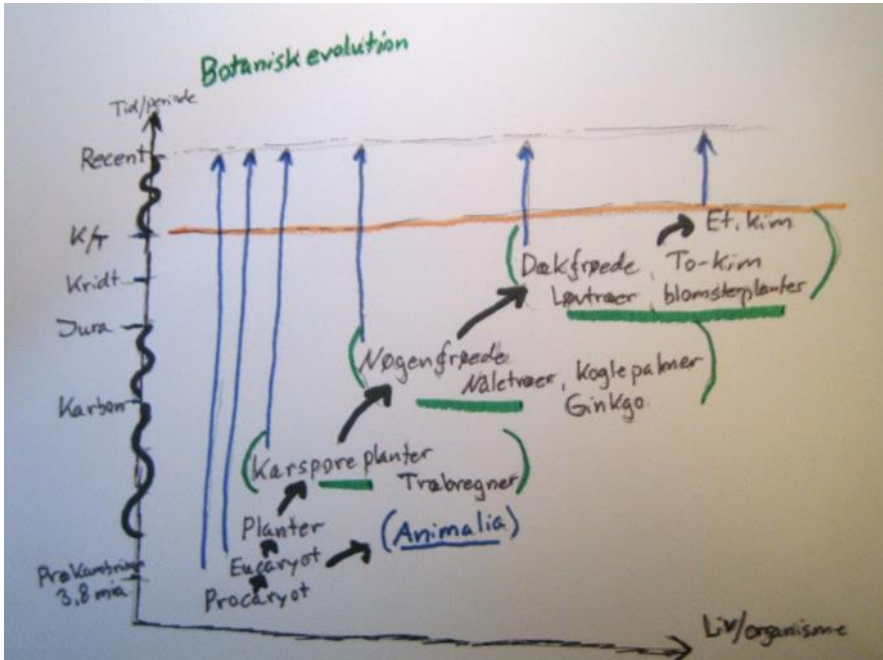 Botanisk evolution
Tid/periode
Recent
K/T
Kridt
Jura
Karbon
Prækambrium
3,8 mia
Et. kim
Dækfrøede, To-kim
Løvtræer, blomsterplanter
Nøgenfrøede
Nåletræer, Koglepalmer
Ginkgo
Karsporeplanter
Træbregner
Planter
(Animalia)
Eucaryot
Procaryot
Liv/organisme